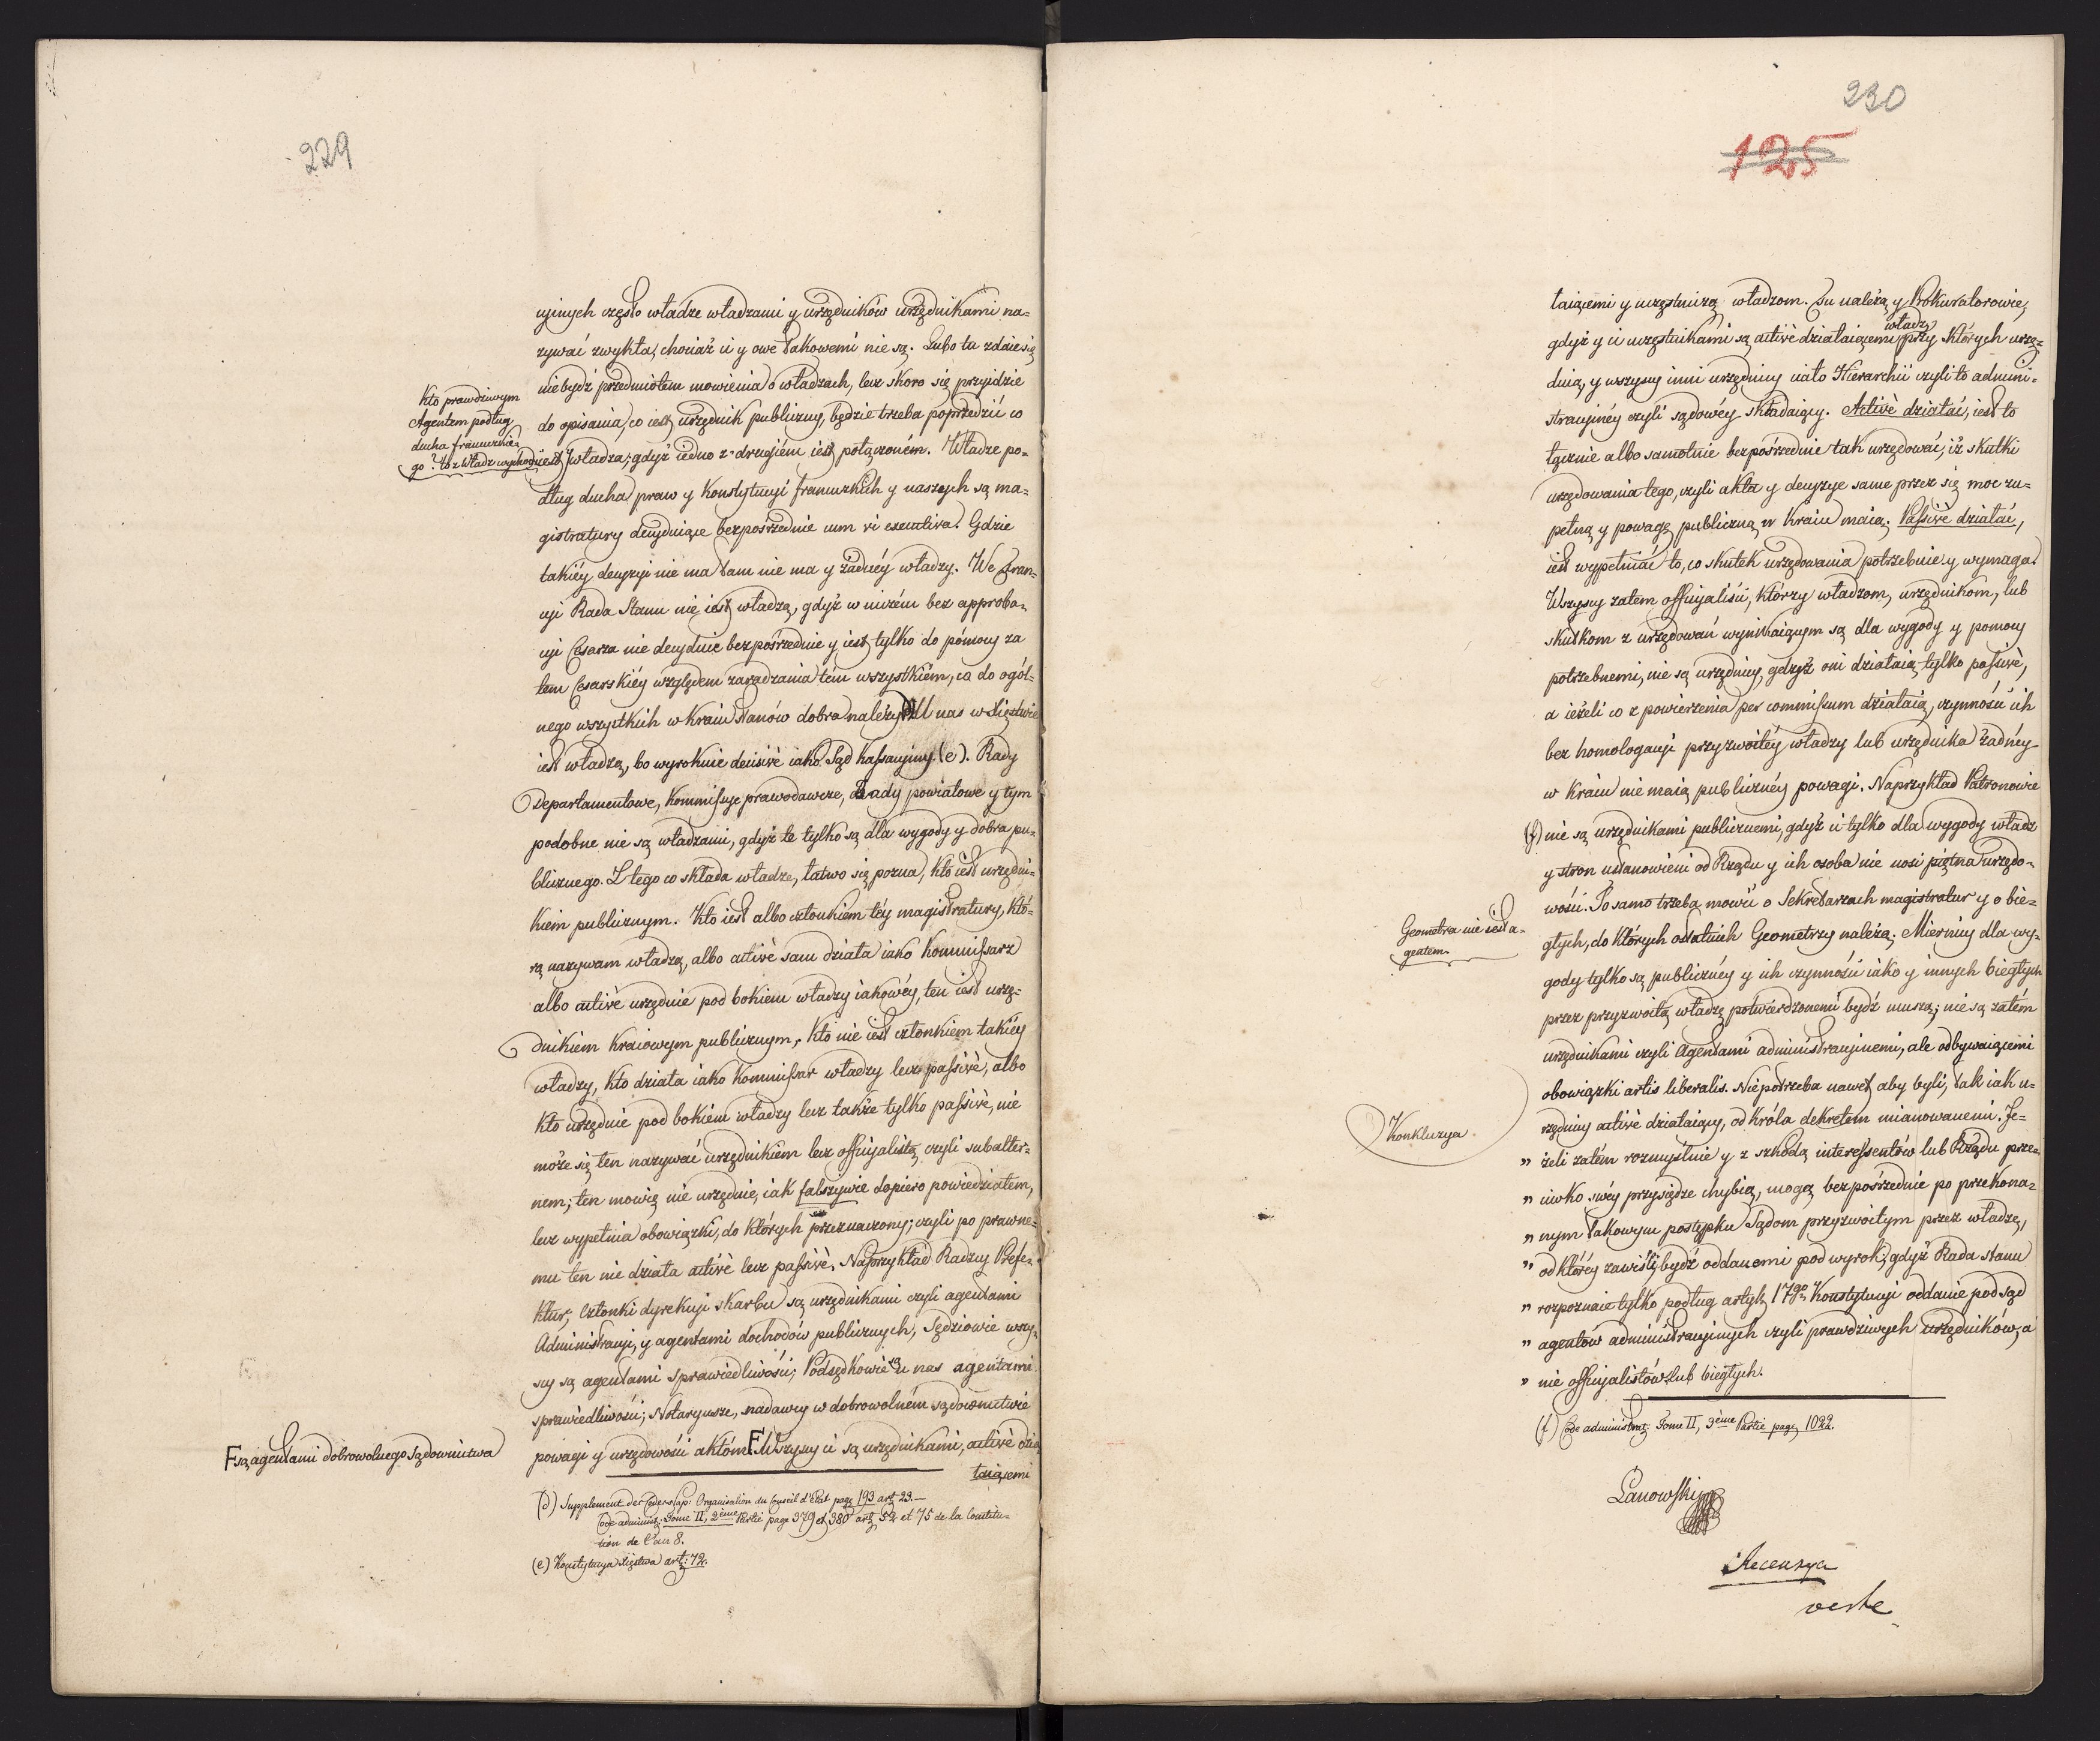 229
cyinych często władze władzami y urzędników urzędnikami na=
zywać zwykła, chociaż ci y owe takowemi nie są. Lubo tu zdaie się
niebydź przedmiotem mowienia o władzach, lecz skoro się przyidzie
do opisania, co iest urzędnik publiczny, będzie trzeba poprzedzić co
Kto prawdziwym
Agentem podług
ducha francuzkie=
go? to z Władz wychodzi
iest władza; gdyż iedno z drugiém iest połączoném. Władze po=
dług ducha praw y Konstytucyi francuzkich y naszych są ma=
gistratury decyduiące bezpośrzednie cum vi executiva. Gdzie
takiéy decyzyi nie ma tam nie ma y żadnéy władzy. We Fran=
cyi Rada Stanu nie iest władzą, gdyż w niczém bez approba=
cyi Cesarza nie decyduie bezpośrzednie y iest tylko do pómocy za
tem Cesarskiéy względem zaradzania tém wszystkiém, co do ogól=
nego wszystkich w Kraiu Stanów dobra należy (d) U nas w Xięztwie
iest władzą, bo wyrokuie decisivè iako Sąd Kassacyiny (e). Rady
Departamentowe, Kommissye prawodawcze, Rady powiatowe y tym
podobne nie są władzami, gdyż te tylko są dla wygody y dobra pu=
blicznego. Z tego co składa władze, łatwo się pozna, kto iest urzędni=
kiem publicznym. Kto iest albo członkiem téy magistratury, któ=
rą nazywam władzą, albo activè sam działa iako Kommissarz
albo activè urzęduie pod bokiem władzy iakowéy, ten iest urzę=
dnikiem kraiowym publicznym, Kto nie iest członkiem takiéy
władzy, kto działa iako Kommissarz władzy lecz passivè, albo
kto urzęduie pod bokiem władzy lecz także tylko passivè, nie
może się ten nazywać urzędnikiem lecz officyalistą czyli subalter=
nem; ten mowię nie urzęduie, iak fałszywie dopiero powiedziałem,
lecz wypełnia obowiązki, do których przeznaczony; czyli po prawne=
mu ten nie działa activè lecz passivè. Naprzykład Radzcy Prefe=
ktur, Członki dyrekcyi skarbu są urzędnikami czyli agentami
Administracyi, y agentami dochodów publicznych, Sędziowie wszy=
scy są agentami sprawiedliwości; Podsędkowie są u nas agentami
sprawiedliwości; Notaryusze, nadawcy w dobrowolném sądownictwie
powagi y urzędowości aktóm F. Wszyscy ci są urzędnikami, activè dzia=
łaiącemi
F są agentami dobrowolnego Sądownictwa
(d) Supplement des Codes Nap: Organisation du Conseil d'Etat page 193 art. 23.—
Code administ: Tome II, 2ème Partie page 379 et 380 art 52 et 75 de la Constitu=
tion de l'an 8.
(e) Konstytucya Xięztwa art: 72.
230
125
łaiącemi y uczęstniczą władzom. Tu należą y Prokuratorowie,
gdyż y ci uczęstnikami są activè działaiącemi władz, przy których urzę=
duią, y wszyscy inni urzędnicy ciało Hierarchii czyli to admini=
stracyinéy czyli sądowéy składaiący. Activè działać, iest to
łącznie albo samotnie bezpośrzednie tak urzędować, iż skutki
urzędowania tego, czyli akta y decyzye same przez się moc zu=
pełną y powagę publiczną w Kraiu maią. Passivè działać,
iest wypełniać to, co skutek urzędowania potrzebuie y wymaga.
Wszyscy zatem officyaliści, którzy władzom, urzędnikom, lub
skutkom z urzędowań wynikaiącym są dla wygody y pomocy
potrzebnemi, nie są urzędnicy, gdzyż oni działaią tylko passivè,
a ieżeli co z powierzenia per commissum działaią, czynności ich
bez homologacyi przyzwoitéy władzy lub urzędnika żadnéy
w Kraiu nie maią publicznéy powagi. Naprzykład Patronowie
(f) nie są urzędnikami publicznemi, gdyż ci tylko dla wygody władz
y stron ustanowieni od Rządu y ich osoba nie nosi piętna urzędo=
wości. To samo trzeba mowić o Sekretarzach magistratur y o bie=
Geometra nie iest a=
gentem.
głych, do których ostatnich Geometrzy należą. Miernicy dla wy=
gody tylko są publicznéy y ich czynności iako y innych biegłych
przez przyzwoitą władzę potwierdzonemi bydź muszą; nie są zatém
urzędnikami czyli Agentami administracyinemi, ale odbywaiącemi
obowiązki artis liberalis. Niepotrzeba nawet, aby byli, tak iak u=
rzędnicy activè działaiący, od Króla dekretem mianowanemi. Je=
Konkluzya.
" żeli zatém rozmyślnie y z szkodą interessentów lub Rządu prze=
" ciwko swéy przysiędze chybią, mogą bezpośrzednie po przekona=
" nym takowym postępku Sądom przyzwoitym przez władzę,
" od któréy zawiśli, bydź oddanemi pod wyrok, gdyż Rada Stanu
" rozpoznaie tylko podług artyk. 17go Konstytucyi oddanie pod sąd
" agentów administracyinych czyli prawdziwych urzędników, a
" nie officyalistów lub biegłych.
(f) Code administrat: Tome II, 3ème Partie page 1022.
Lanowski
Recenzya
verte